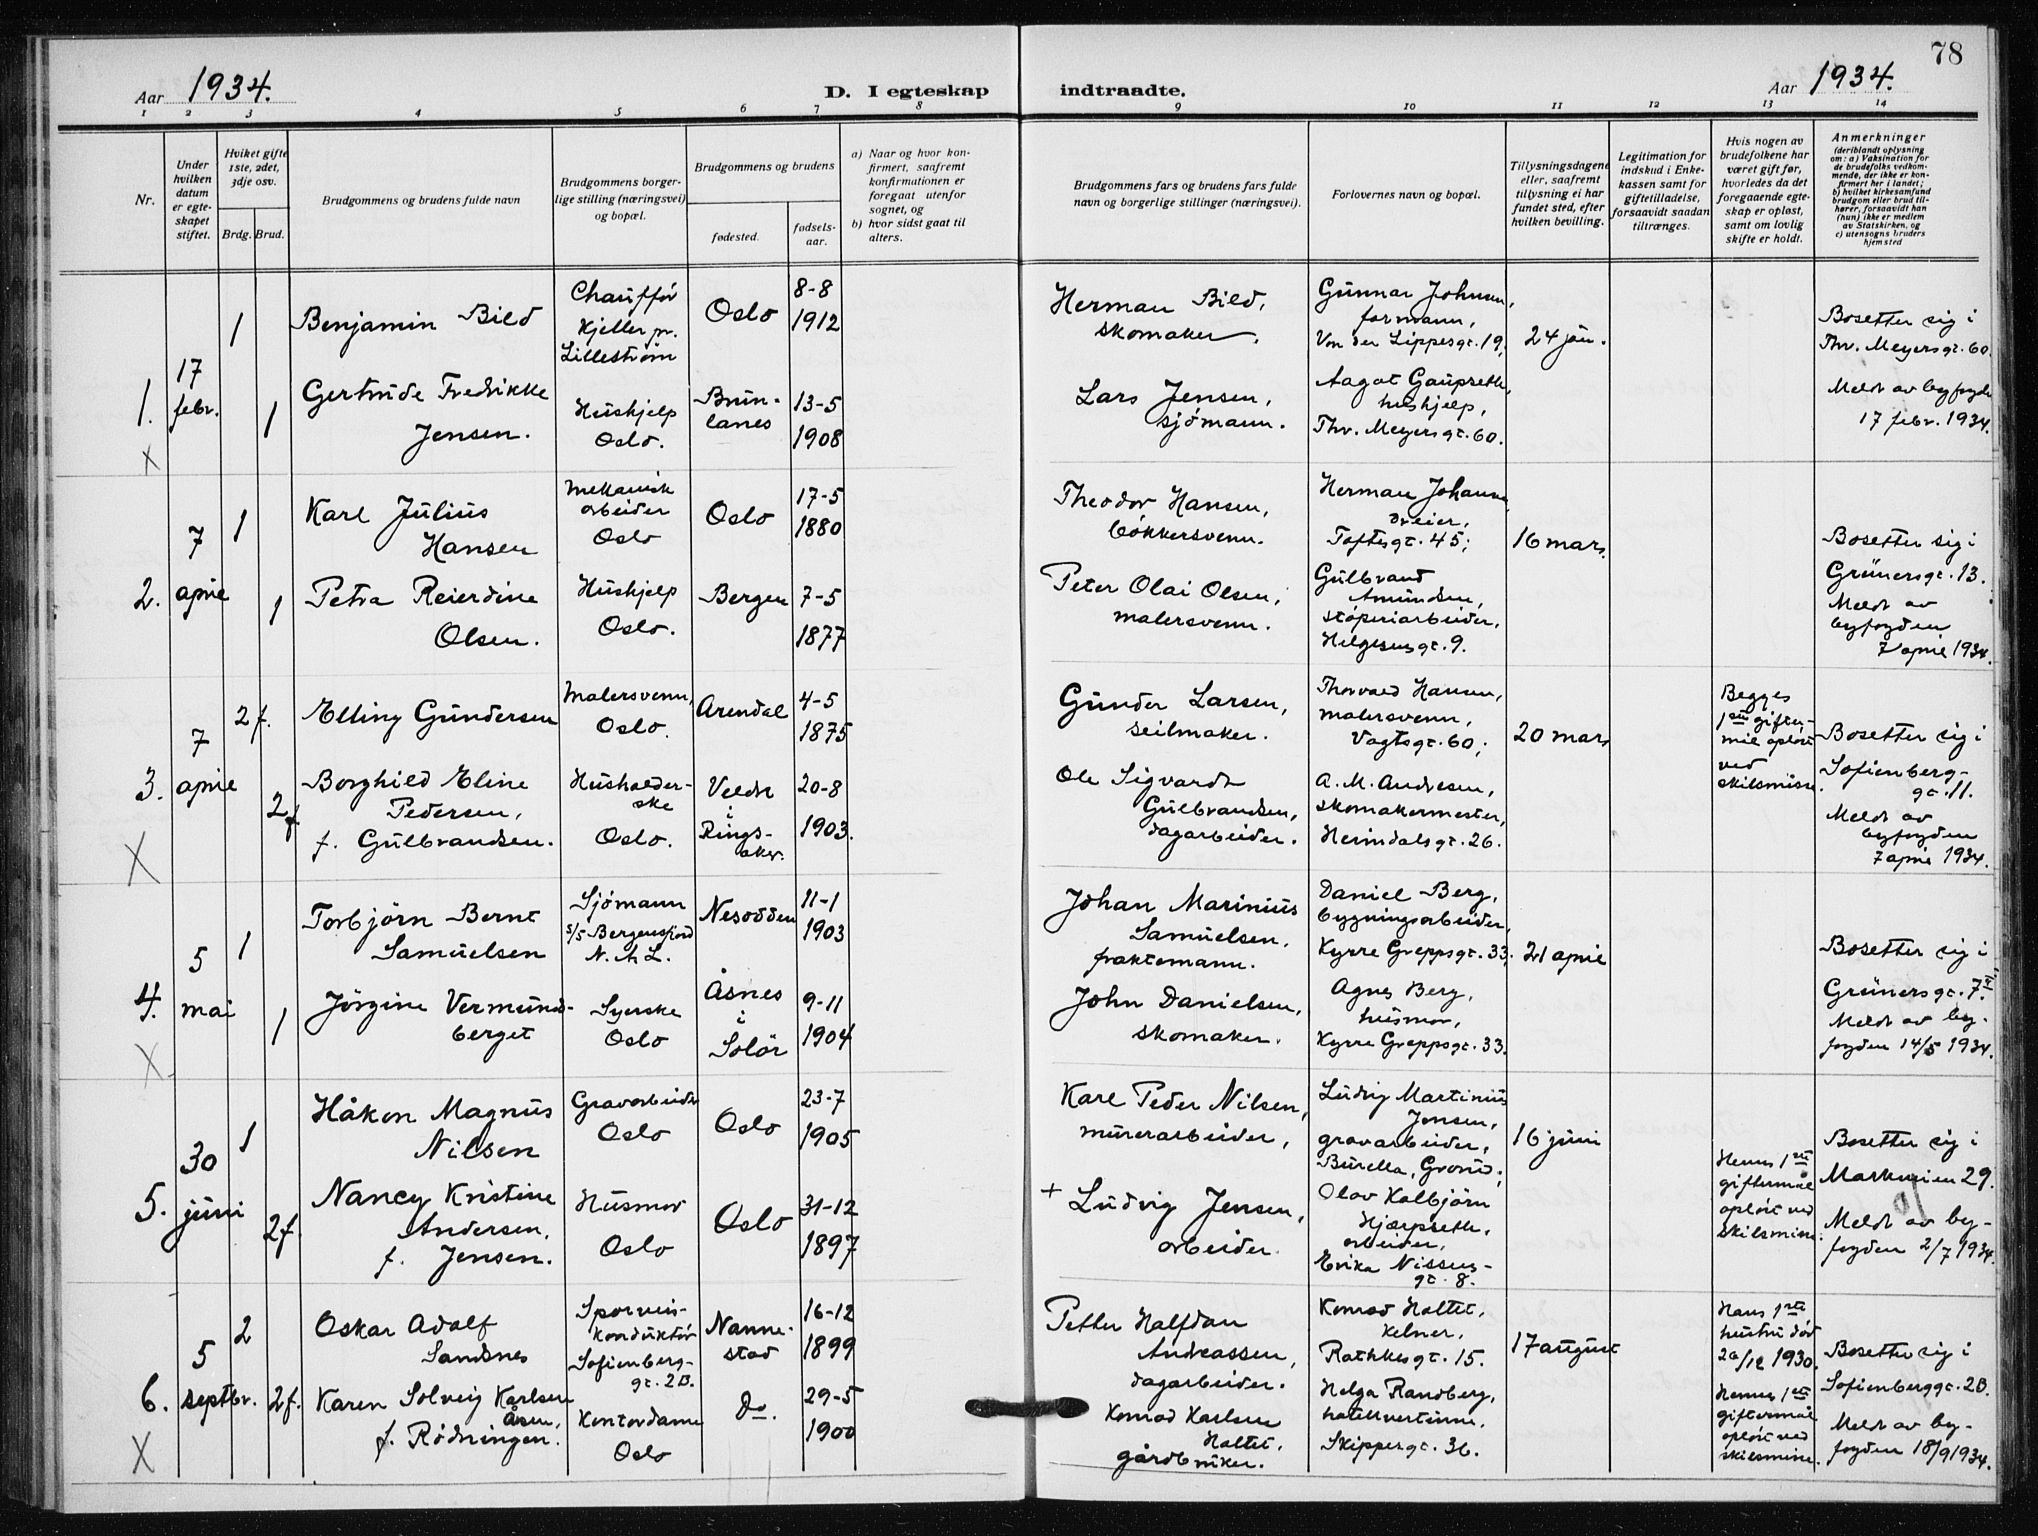 78
Aar 1934.
D. I egteskap
indtraadte.
Aar 1934.
1 2 3 4 5 6 7 8 9 10 11 12 13 14
Nr.
Under
hvilken
datum
er egte-
skapet
stiftet.
Hviket gifte
1ste, 2det,
3dje osv.
Brdg. Brud.
Brudgommens og brudens fulde navn
Brudgommens borger-
lige stilling (næringsvei)
og bopæl.
Brudgommens og brudens
fødested.
fødsels-
aar.
a) Naar og hvor kon-
firmert, saafremt
konfirmationen er
foregaat utenfor
sognet, og
b) hvor sidst gaat til
alters.
Brudgommens fars og brudens fars fulde
navn og borgerlige stillinger (næringsvei).
Forlovernes navn og bopæl.
Tillysningsdagene
eller, saafremt
tillysning ei har
fundet sted, efter
hvilken bevilling.
Legitimation for
indskud i Enke-
kassen samt for
giftetilladelse,
forsaavidt saadan
tiltrænges.
Hvis nogen av
brudefolkene har
været gift før,
hvorledes da det
foregaaende egte-
skap er opløst,
samt om lovlig
skifte er holdt.
Anmerkninger
(deriblandt oplysning
om: a) Vaksination for
de brudefolks vedkom-
mende, der ikke er kon-
firmert her i landet;
b) hvilket kirkesamfund
brudgom eller brud til-
hører, forsaavidt han
(hun) ikke er medlem
av Statskirken, og
c) utensogns bruders
hjemsted
1.
X
17
febr.
1
Benjamin Bild
Chauffør
Kjeller pr.
Lillestrøm
Oslo
8-8
1912
Herman Bild,
skomaker.
Gunnar Johnsen,
formann,
Von der Lippesgt. 19,
24 jan.
Bosetter sig i
Thv. Meyersgt. 60.
1
Gertrude Fredrikke
Jensen.
Hushjelp
Oslo.
Brun-
lanes
13-5
1908
Lars Jensen,
sjømann.
Aagot Gaupseth,
hushjelp,
Thv. Meyersgt. 60.
Meldt av byfogden
17 febr. 1934.
2.
7
april
1
Karl Julius
Hansen
Mekanisk
arbeider
Oslo
Oslo
17-5
1880
Theodor Hansen,
bøkkersvenn.
Herman Johansen
dreier,
Toftesgt. 45;
16 mars.
Bosetter sig i
Grünersgt. 13.
1
Petra Reierdine
Olsen.
Hushjelp
Oslo.
Bergen
7-5
1877
Peter Olai Olsen,
malersvenn.
Gulbrand
Amundsen,
støperiarbeider,
Helgesensgt. 9.
Meldt av
byfogden
7 april 1934.
3.
X
7
april
2 f.
Elling Gundersen
Malersvenn,
Oslo.
Arendal
4-5
1875
Gunder Larsen,
seilmaker.
Thorvald Hansen,
malersvenn,
Vogtsgt. 60;
20 mars
Begges
1ste gifter-
mål opløst
ved
skilsmisse.
Bosetter sig i
Sofienberg-
gt. 11.
2 f.
Borghild Eline
Pedersen,
f. Gulbrandsen.
Husholder-
ske
Oslo.
Veldre
i
Rings-
aker.
20-8
1903.
Ole Sigvardt
Gulbrandsen,
dagarbeider.
A. M. Andresen,
skomakermester,
Heimdalsgt. 26.
Meldt av
byfogden
7 april 1934.
4.
X
5
mai
1
Torbjørn Bernt
Samuelsen
Sjømann
s/s Bergensfjord
N. A. L.
Nesodden
11-1
1903
Johan Marinius
Samuelsen,
fraktemann.
Daniel Berg,
bygningsarbeider,
Kyrre Greppsgt. 33;
21 april
Bosetter sig i
Grünersgt. 7.
1
Jørgine Vermunds-
berget
Syerske
Oslo
Åsnes
i
Solør
9-11
1904
John Danielsen,
skomaker.
Agnes Berg,
husmor,
Kyrre Greppsgt. 33.
Meldt av by-
fogden 14/5 1934.
5.
30
juni
1
Håkon Magnus
Nilsen
Gravarbeider
Oslo
Oslo
23-7
1905
Karl Peder Nilsen,
murerarbeider,
Ludvig Martinius
Jensen,
gravarbeider,
Burella, Grorud;
16 juni
Bosetter sig i
Markveien 29.
2 f.
Nancy Kristine
Andersen,
f. Jensen.
Husmor
Oslo
Oslo
31-12
1897
+ Ludvig Jensen,
arbeider.
Olav Kolbjørn
Hjærpseth,
arbeider,
Erika Nissens-
gt. 8.
Hennes 1ste
giftermål
opløst ved
skilsmisse.
Meldt av by-
fogden 2/7 1934.
6.
X
5
septbr.
2
Oskar Adolf
Sandsnes
Sporveis-
konduktør
Sofienberg-
gt. 2B.
Nanne-
stad
16-12
1899
Petter Halfdan
Andreassen,
dagarbeider.
Konrad Holtet,
kelner,
Rathkesgt. 15.
17 august
Hans 1ste
hustru død
20/12 1930.
Bosetter sig i
Sofienberggt. 2B.
2 f.
Karen Solveig Karlsen
Åsen,
f. Rødningen.
Kontordame
Oslo
do.
29-5
1900
Konrad Karlsen
Holtet,
gårdbruker.
Helga Randberg,
hotellvertinne,
Skippergt. 36.
Hennes 1ste
giftermål
opløst ved
skilsmisse.
Meldt av by-
fogden 18/9 1934.